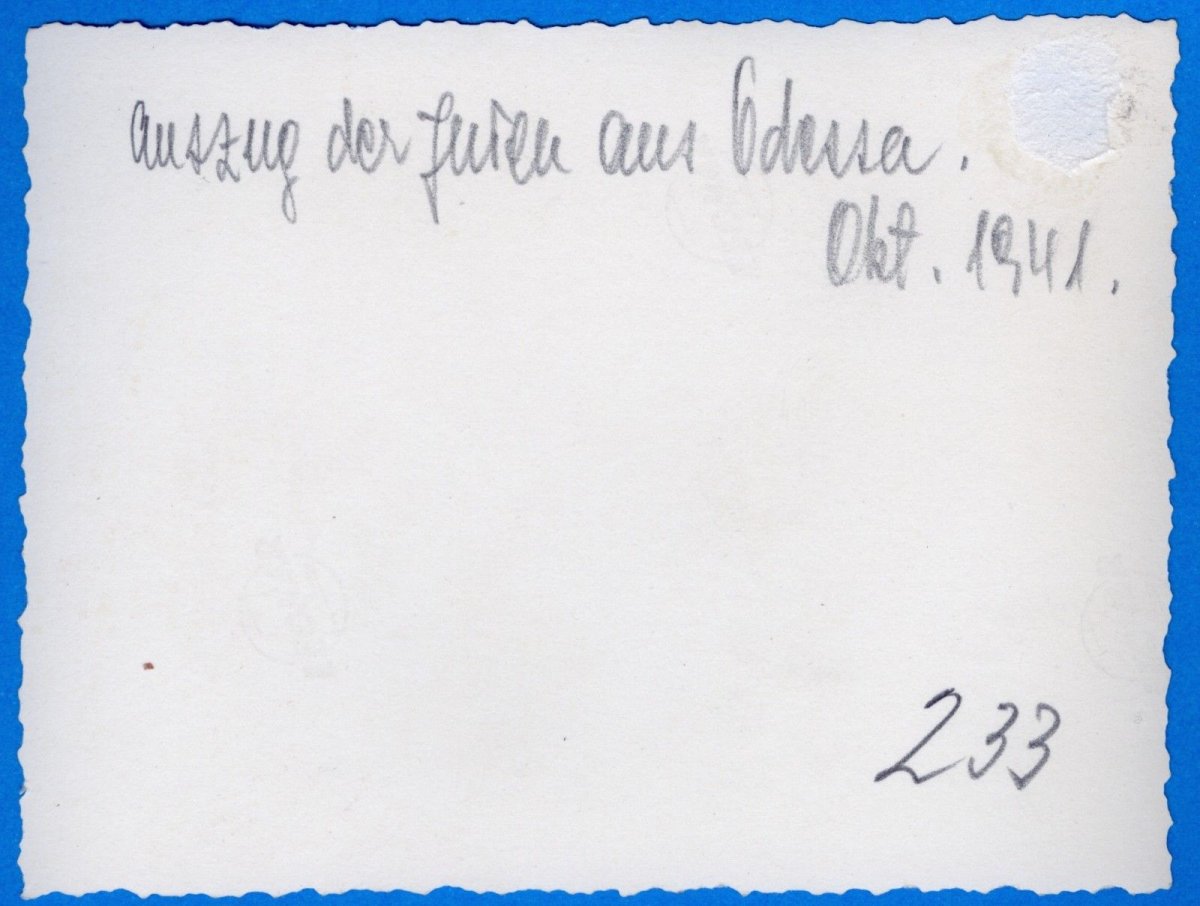 Auszug der Juden aus Odessa.
Okt. 1941.
233